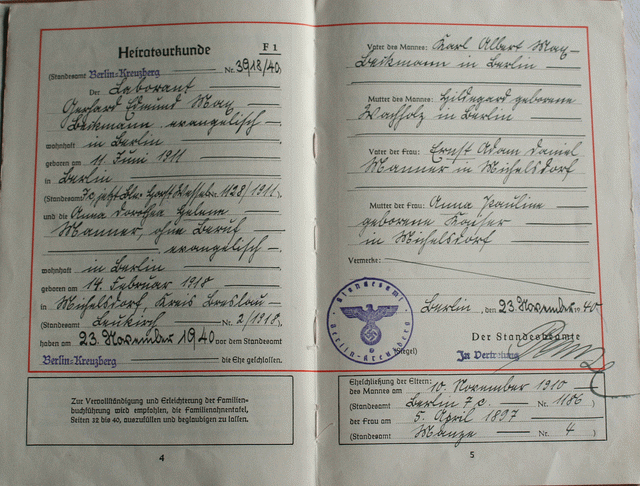 Heiratsurkunde F 1
(Standesamt Berlin-Kreuzberg Nr. 3918/40)
Der Laborant
Gerhard Edmund Max
Beckmann evangelisch
wohnhaft in Berlin
geboren am 11. Juni 1911
in Berlin
(Standesamt 7c, jetzt Bln. Horst Wessel Nr. 1128/1911)
und die Anna Dorothea Helene
Manner, ohne Beruf
evangelisch
wohnhaft in Berlin
geboren am 14. Februar 1918
in Michelsdorf Kreis Breslau
(Standesamt Leukirch Nr. 2/1918)
haben am 23. November 1940 vor dem Standesamt
Berlin-Kreuzberg die Ehe geschlossen.
Zur Vervollständigung und Erleichterung der Familien-
buchführung wird empfohlen, die Familienahnentafel,
Seiten 32 bis 40, auszufüllen und beglaubigen zu lassen.
4
Vater des Mannes: Karl Albert Max
Beckmann in Berlin
Mutter des Mannes: Hildegard geborene
Wachholz in Berlin
Vater der Frau: Ernst Adam Daniel
Manner in Michelsdorf
Mutter der Frau: Anna Pauline
geborene Kayser
in Michelsdorf
Vermerke:
Standesamt
Berlin-Kreuzberg
Berlin, den 23. November 1940
Der Standesbeamte
(Siegel) In Vertretung
Eheschließung der Eltern:
des Mannes am 10. November 1910
(Standesamt Berlin 7c. Nr. 1186)
der Frau am 5. April 1897
(Standesamt Manze Nr. 4)
5